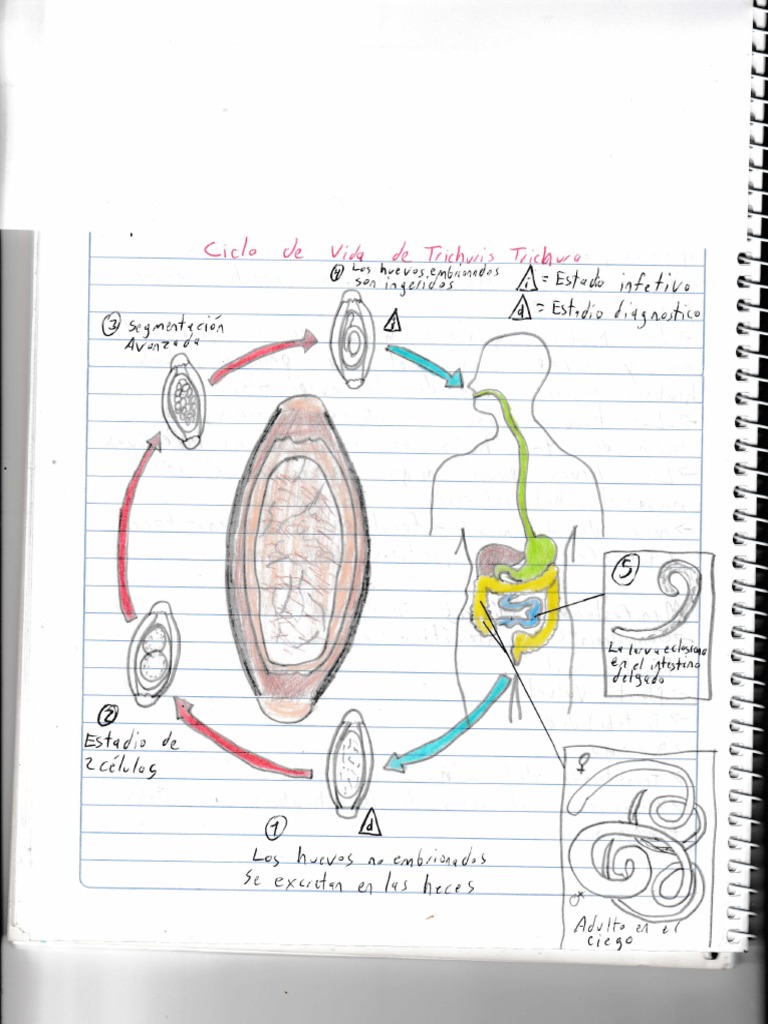 Ciclo de Vida de Trichuris Trichura
④ Los huevos embrionados
son ingeridos
i = Estado infetivo
d = Estadio diagnostico
③ Segmentación
Avanzada
i
⑤
La larva eclosiona
en el intestino
delgado
② 
Estadio de
2 células
d
①
Los huevos no embrionados
Se excretan en las heces
♀
♂
Adulto en el
ciego